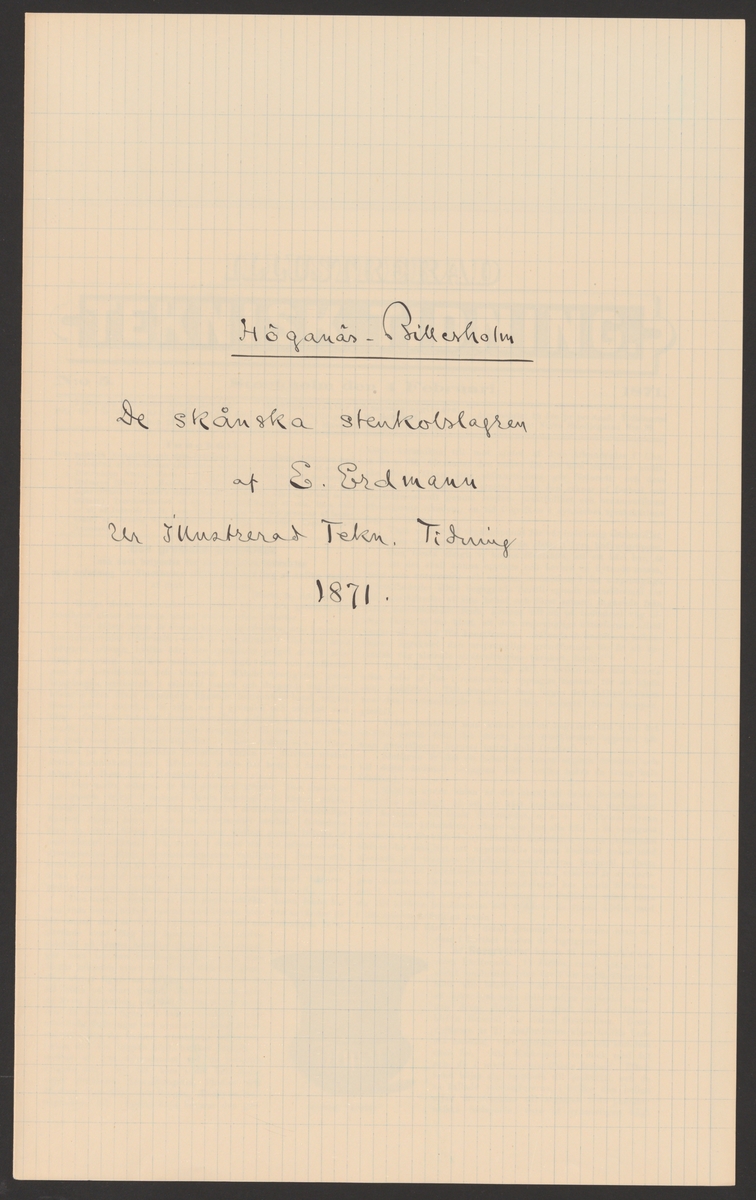 Höganäs - Billesholm
De skånska stenkolslagren
af E. Erdmann
Ur Illustrerad Tekn. Tidning
1871.